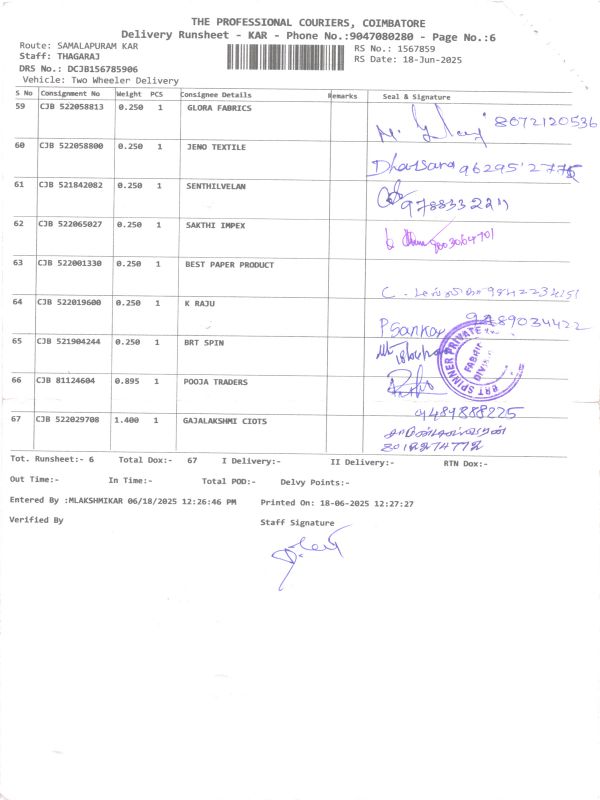 THE PROFESSIONAL COURIERS, COIMBATORE
Delivery Runsheet - KAR - Phone No.:9047080280 - Page No.:6
Route: SAMALAPURAM KAR
RS No.: 1567859
Staff: THAGARAJ
RS Date: 18-Jun-2025
DRS No.: DCJB156785906
Vehicle: Two Wheeler Delivery
S No Consignment No Weight PCS Consignee Details Remarks Seal & Signature
59 CJB 522058813 0.250 1 GLORA FABRICS 8072120536
60 CJB 522058800 0.250 1 JENO TEXTILE Dharsana
61 CJB 521842082 0.250 1 SENTHILVELAN
62 CJB 522065027 0.250 1 SAKTHI IMPEX
63 CJB 522001330 0.250 1 BEST PAPER PRODUCT
64 CJB 522019600 0.250 1 K RAJU P Sankar
65 CJB 521904244 0.250 1 BRT SPIN
BRT SPINNER PRIVATE
66 CJB 81124604 0.895 1 POOJA TRADERS
9489888225
67 CJB 522029708 1.400 1 GAJALAKSHMI CIOTS
Tot. Runsheet:- 6 Total Dox:- 67 I Delivery:- II Delivery:- RTN Dox:-
Out Time:- In Time:- Total POD:- Delvy Points:-
Entered By :MLAKSHMIKAR 06/18/2025 12:26:46 PM Printed On: 18-06-2025 12:27:27
Verified By Staff Signature